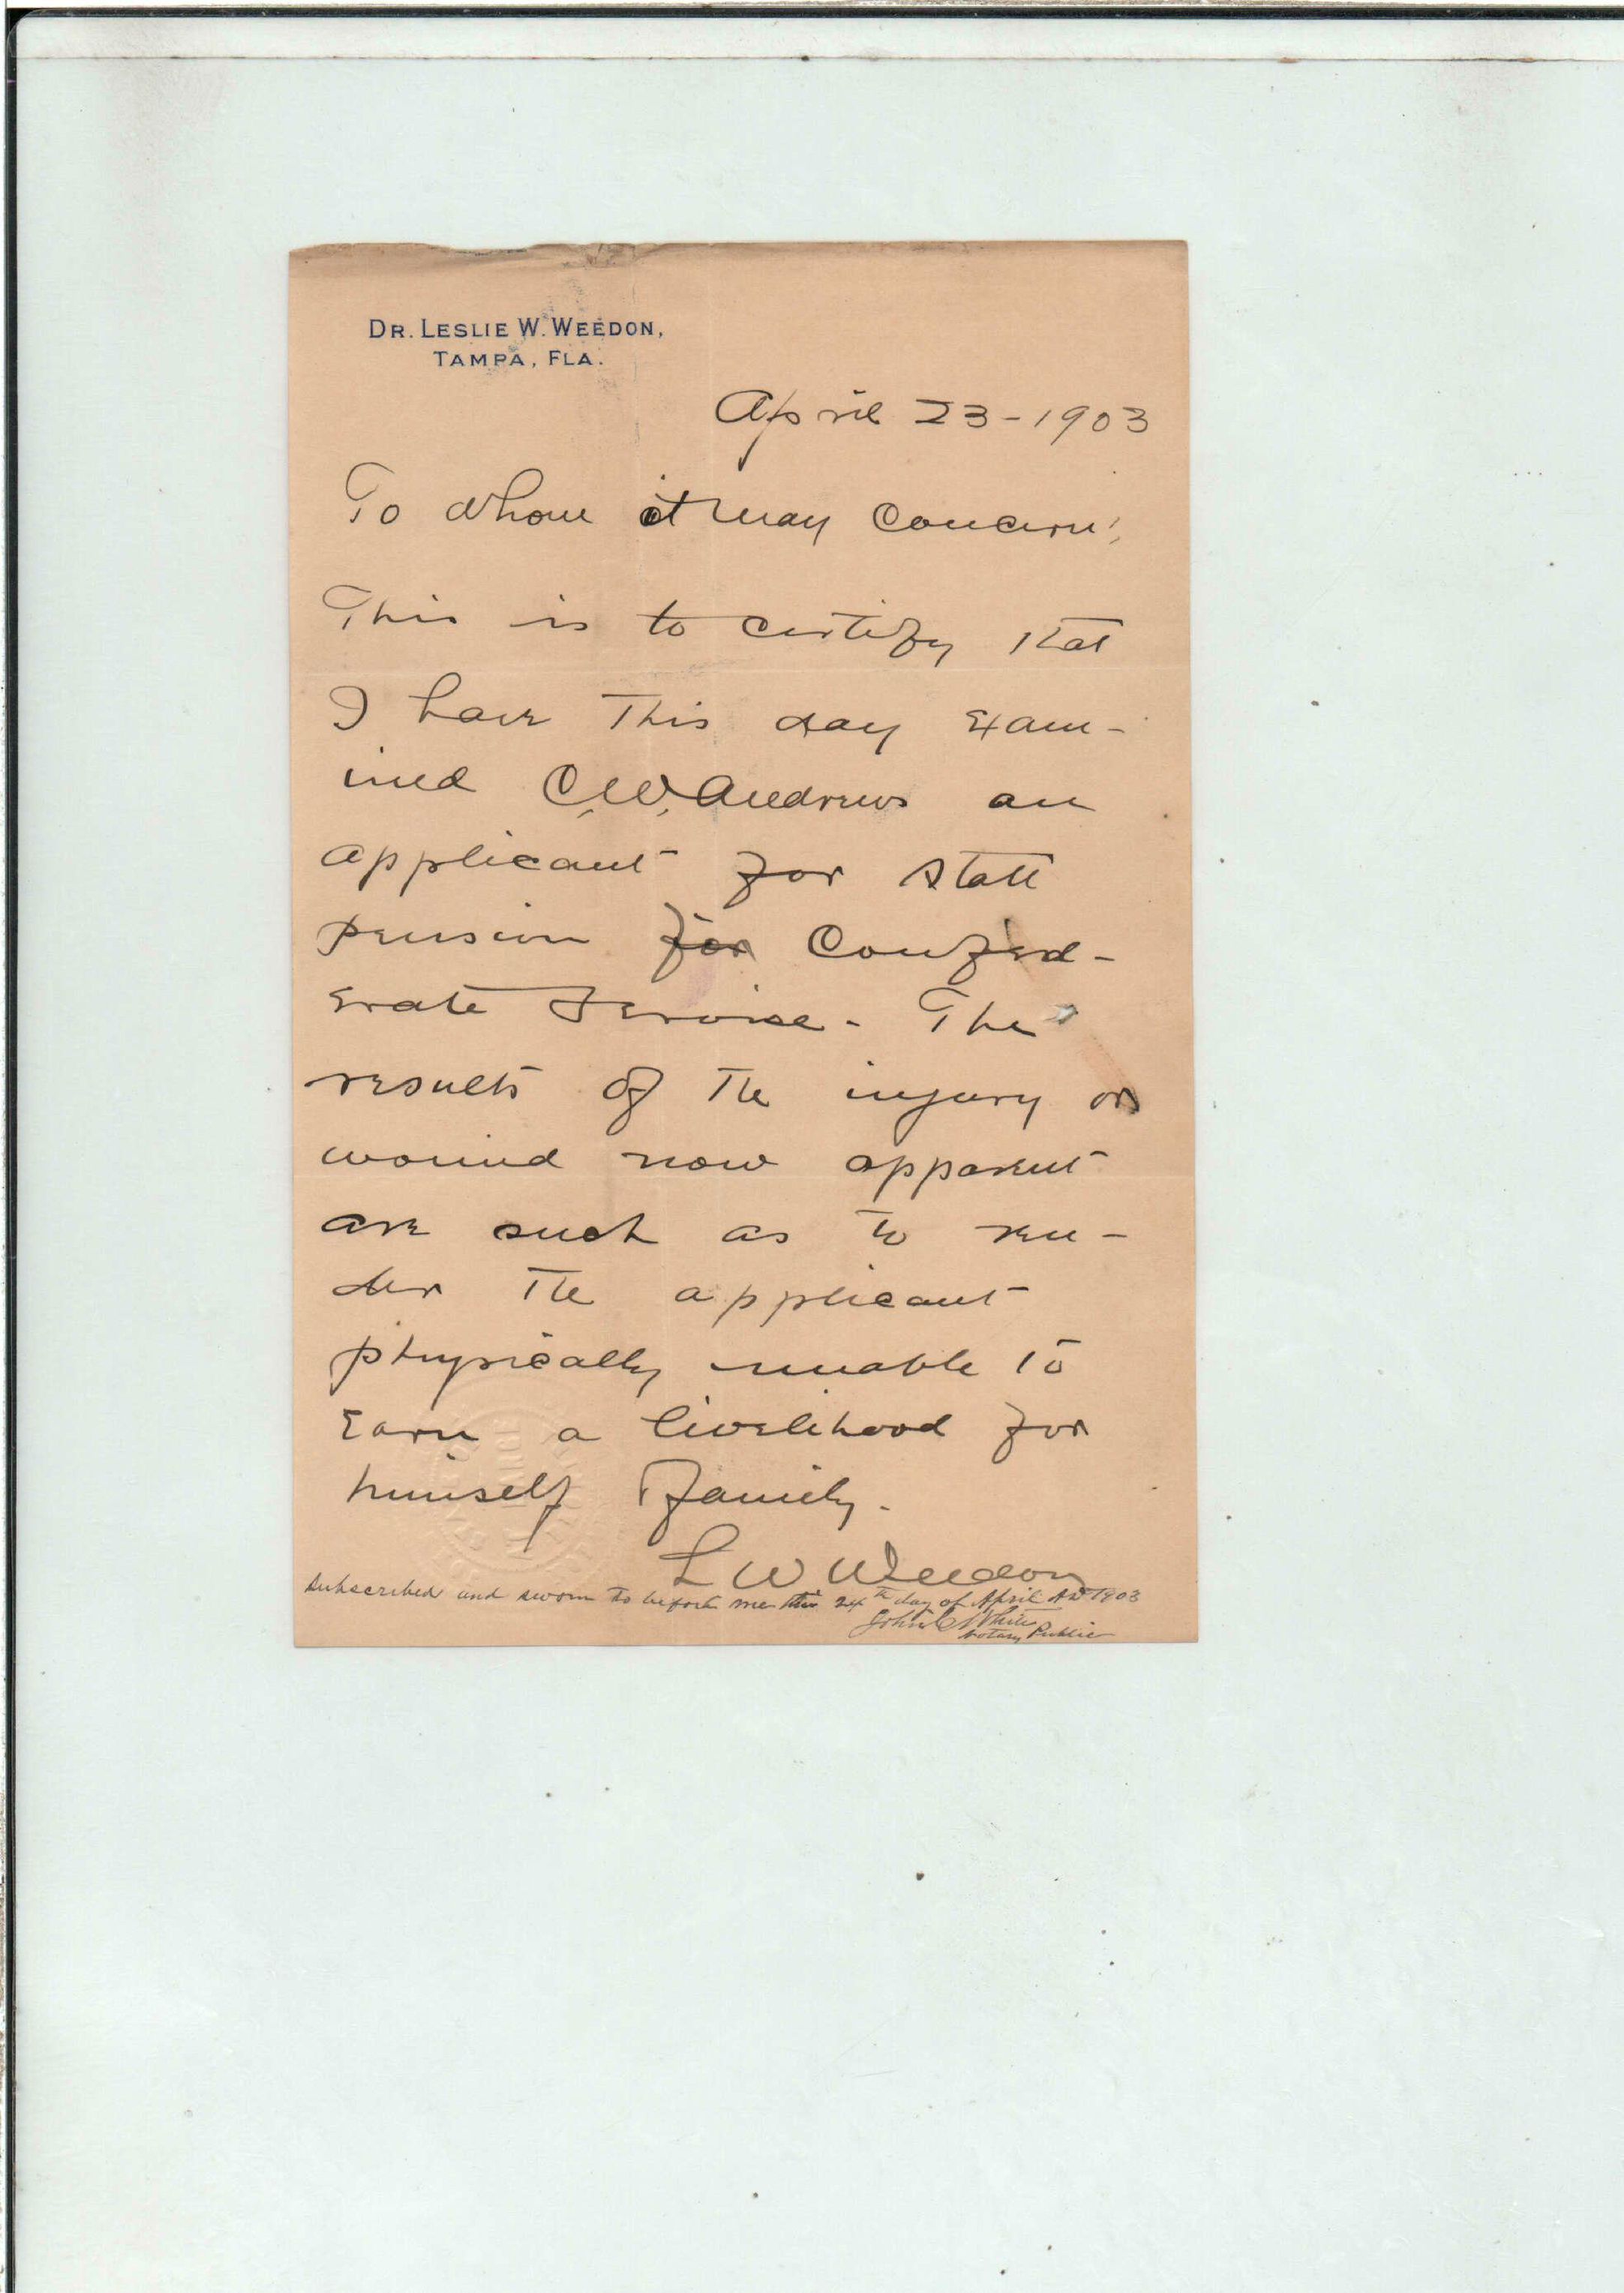 DR. LESLIE W. WEEDON,
TAMPA, FLA.
April 23-1903
To whom it may concern;
This is to certify that
I have this day exam-
ined C.W. Andrews an
applicant for state
pension for Confed-
erate Service. The
results of the injury or
wound now apparent
are such as to ren-
der the applicant
physically unable to
earn a livelihood for
himself family.
L W Weedon
Subscribed and sworn to before me this 24th day of April AD 1903
John C White
Notary Public